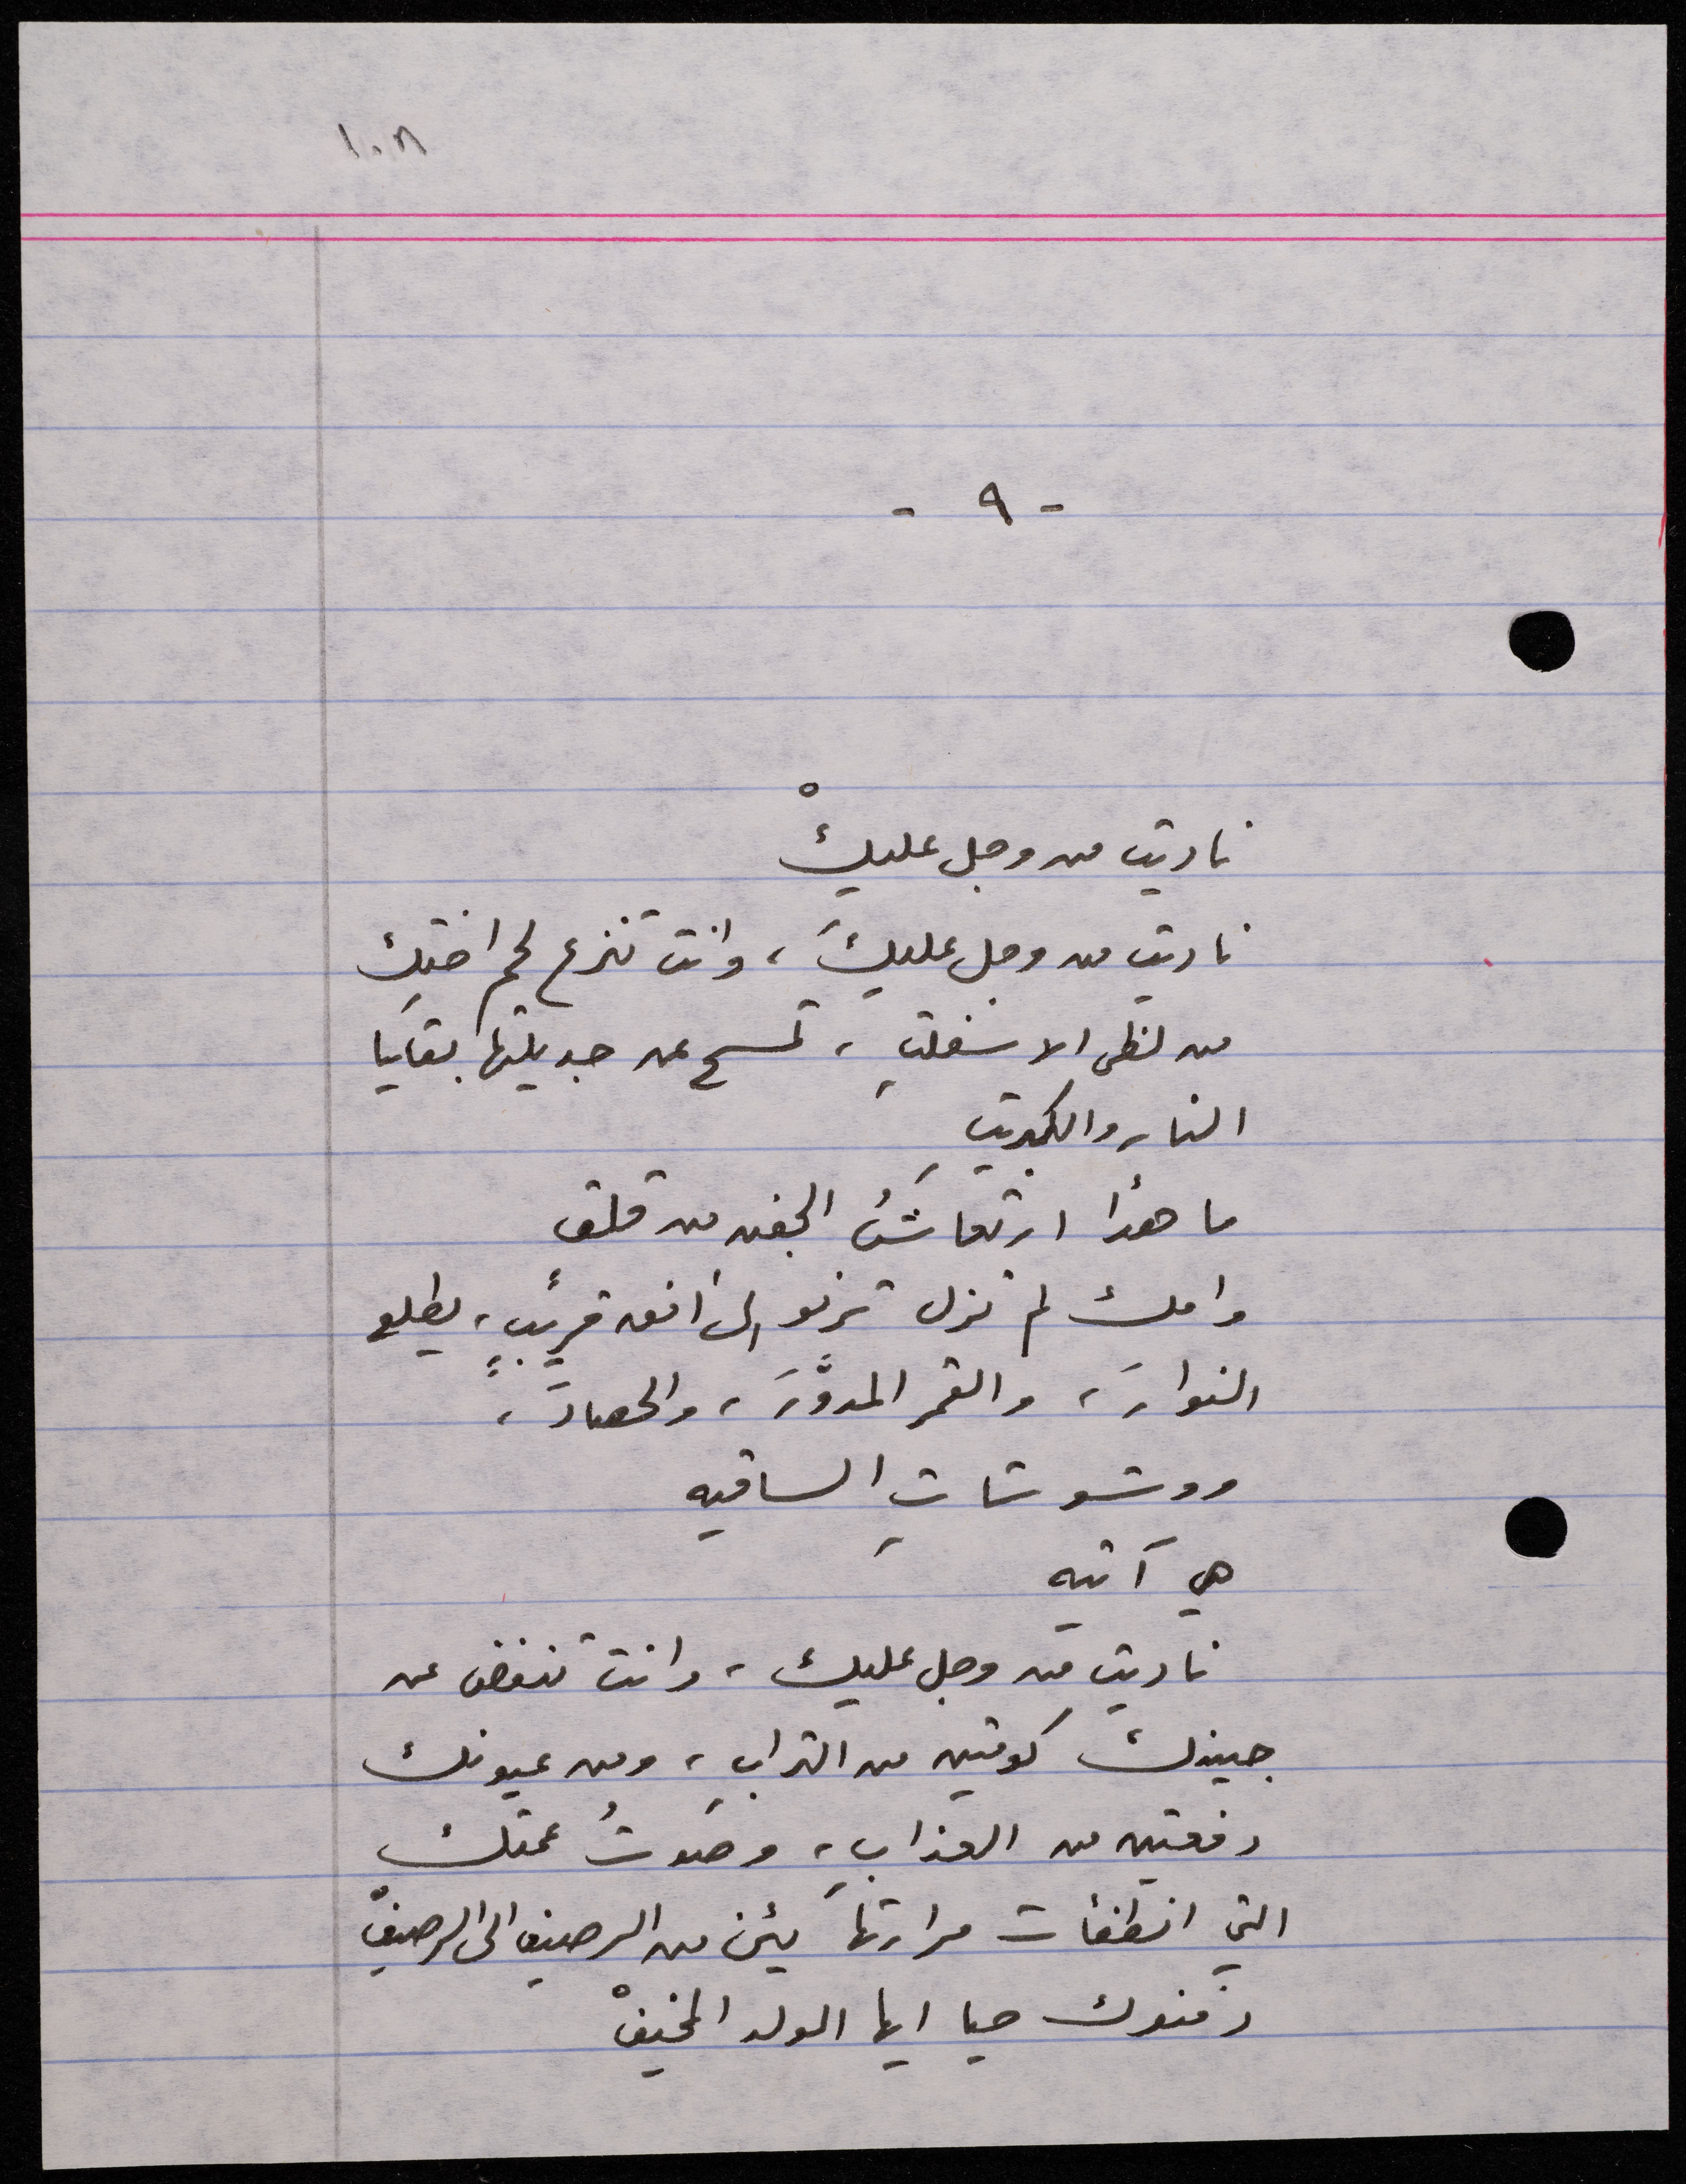 ١٠٨
- ٩ -
ناديت من وجل عليكْ
ناديت من وجل عليكَ، وانت تنزع لحم اختك
من لظى الاسفلتِ، تمسح عن جديلتها بقايا
النار والكبريتِ
ما هذا ارتعاشُ الجفن من قلق
وامك لم تزل ترنو الى افق قريبٍ، يطلع
النوارَ، والقمر المدوَّرَ، والحصادَ،
ووشوشاتِ الساقيه
هي آتيه
ناديت من وجل عليك، وانت تنفض عن
جبينك كومتين من الترابِ، ومن عيونك
دفعتين من العذابِ، وصوتُ عمتك
التي انطفأت مرارتها يئن من الرصيف الى الرصيفْ
دفنوك حيا ايها الولد المخيفْ